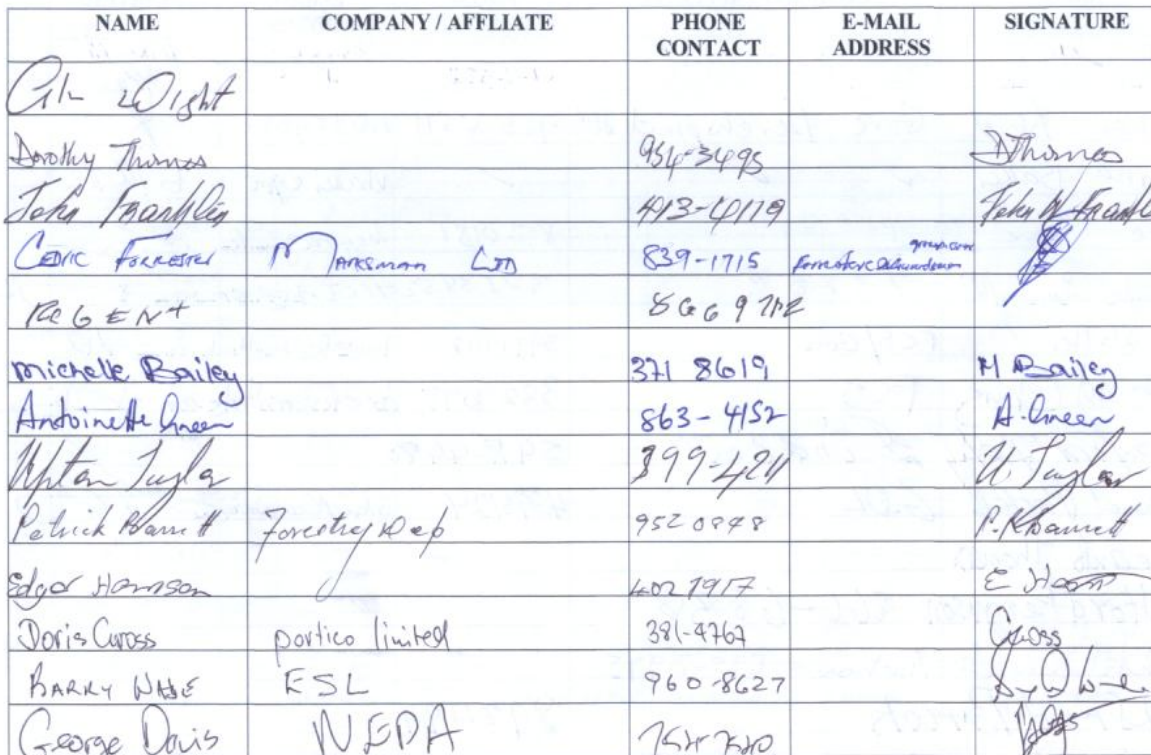 NAME COMPANY / AFFLIATE PHONE CONTACT E-MAIL ADDRESS SIGNATURE
Wight
Dorothy Thomas 954-3495 DThomas
John Franklin 413-4119 John W Frankl
CEDRIC FORRESTER MARKSMAN LTD 839-1715
REGENT
Michelle Bailey 371 8619 M Bailey
Antoinette Green 863-4152 A. Green
Upton Taylor 399-4211 U. Taylor
Patrick Barrett Forestry Dep 9520848 P. R Barrett
Edgar Harrison 402 7917 E
Doris Gross portico limited 381-4767 Gross
BARRY WADE ESL 960-8627
George Davis NEPA